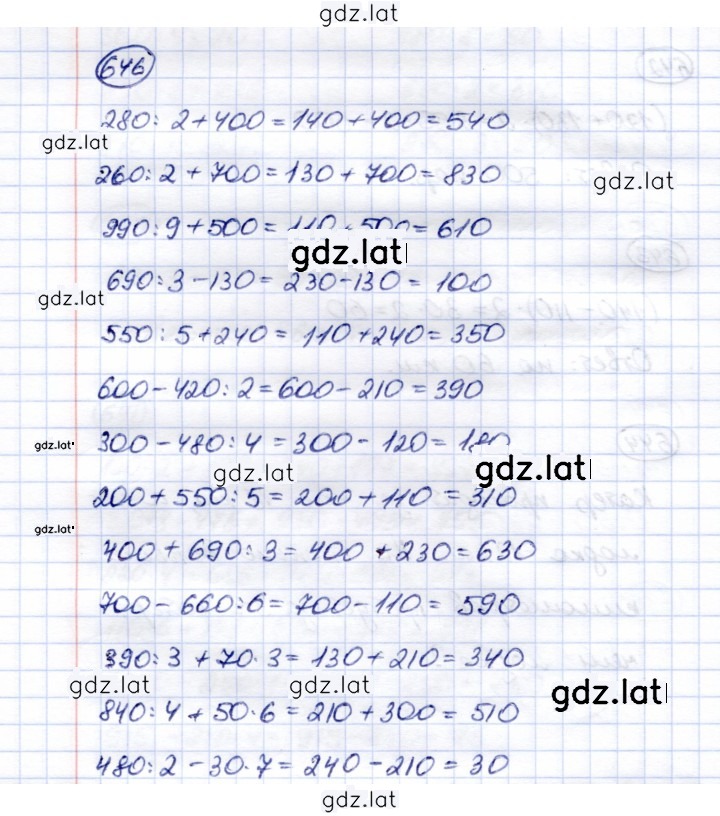 gdz.lat
646
280 : 2 + 400 = 140 + 400 = 540
gdz.lat
260 : 2 + 700 = 130 + 700 = 830
gdz.lat
990 : 9 + 500 = 110 + 500 = 610
gdz.lat
690 : 3 - 130 = 230 - 130 = 100
gdz.lat
550 : 5 + 240 = 110 + 240 = 350
600 - 420 : 2 = 600 - 210 = 390
gdz.lat
300 - 480 : 4 = 300 - 120 = 180
gdz.lat
gdz.lat
200 + 550 : 5 = 200 + 110 = 310
gdz.lat
400 + 690 : 3 = 400 + 230 = 630
700 - 660 : 6 = 700 - 110 = 590
390 : 3 + 70 · 3 = 130 + 210 = 340
gdz.lat
gdz.lat
gdz.lat
840 : 4 + 50 · 6 = 210 + 300 = 510
480 : 2 - 30 · 7 = 240 - 210 = 30
gdz.lat